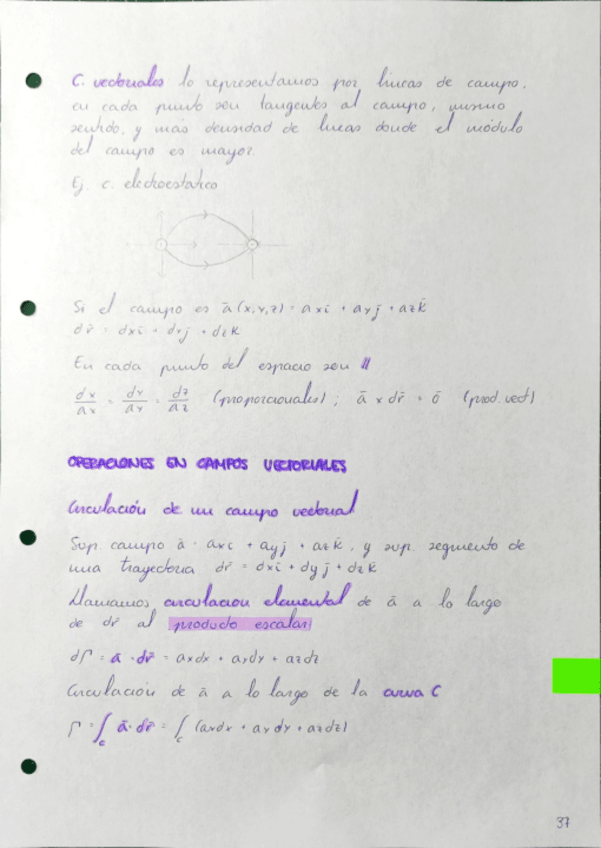 C. vectoriales lo representamos por líneas de campo,
en cada punto son tangentes al campo, mismo
sentido, y más densidad de líneas donde el módulo
del campo es mayor.
Ej. c. electroestático
Si el campo es ā(x,y,z) = axī + ayj̄ + azk̄
dr̄ = dxī + dyj̄ + dzk̄
En cada punto del espacio son //
dx/ax = dy/ay = dz/az (proporcionales); ā x dr̄ = ō (prod. vect)
OPERACIONES EN CAMPOS VECTORIALES
Circulación de un campo vectorial
Sup. campo ā = axī + ayj̄ + azk̄, y sup. segmento de
una trayectoria dr̄ = dxī + dyj̄ + dzk̄
Llamamos circulación elemental de ā a lo largo
de dr̄ al producto escalar
dΓ = ā · dr̄ = axdx + aydy + azdz
Circulación de ā a lo largo de la curva C
Γ = ∫c ā · dr̄ = ∫c (axdx + aydy + azdz)
37